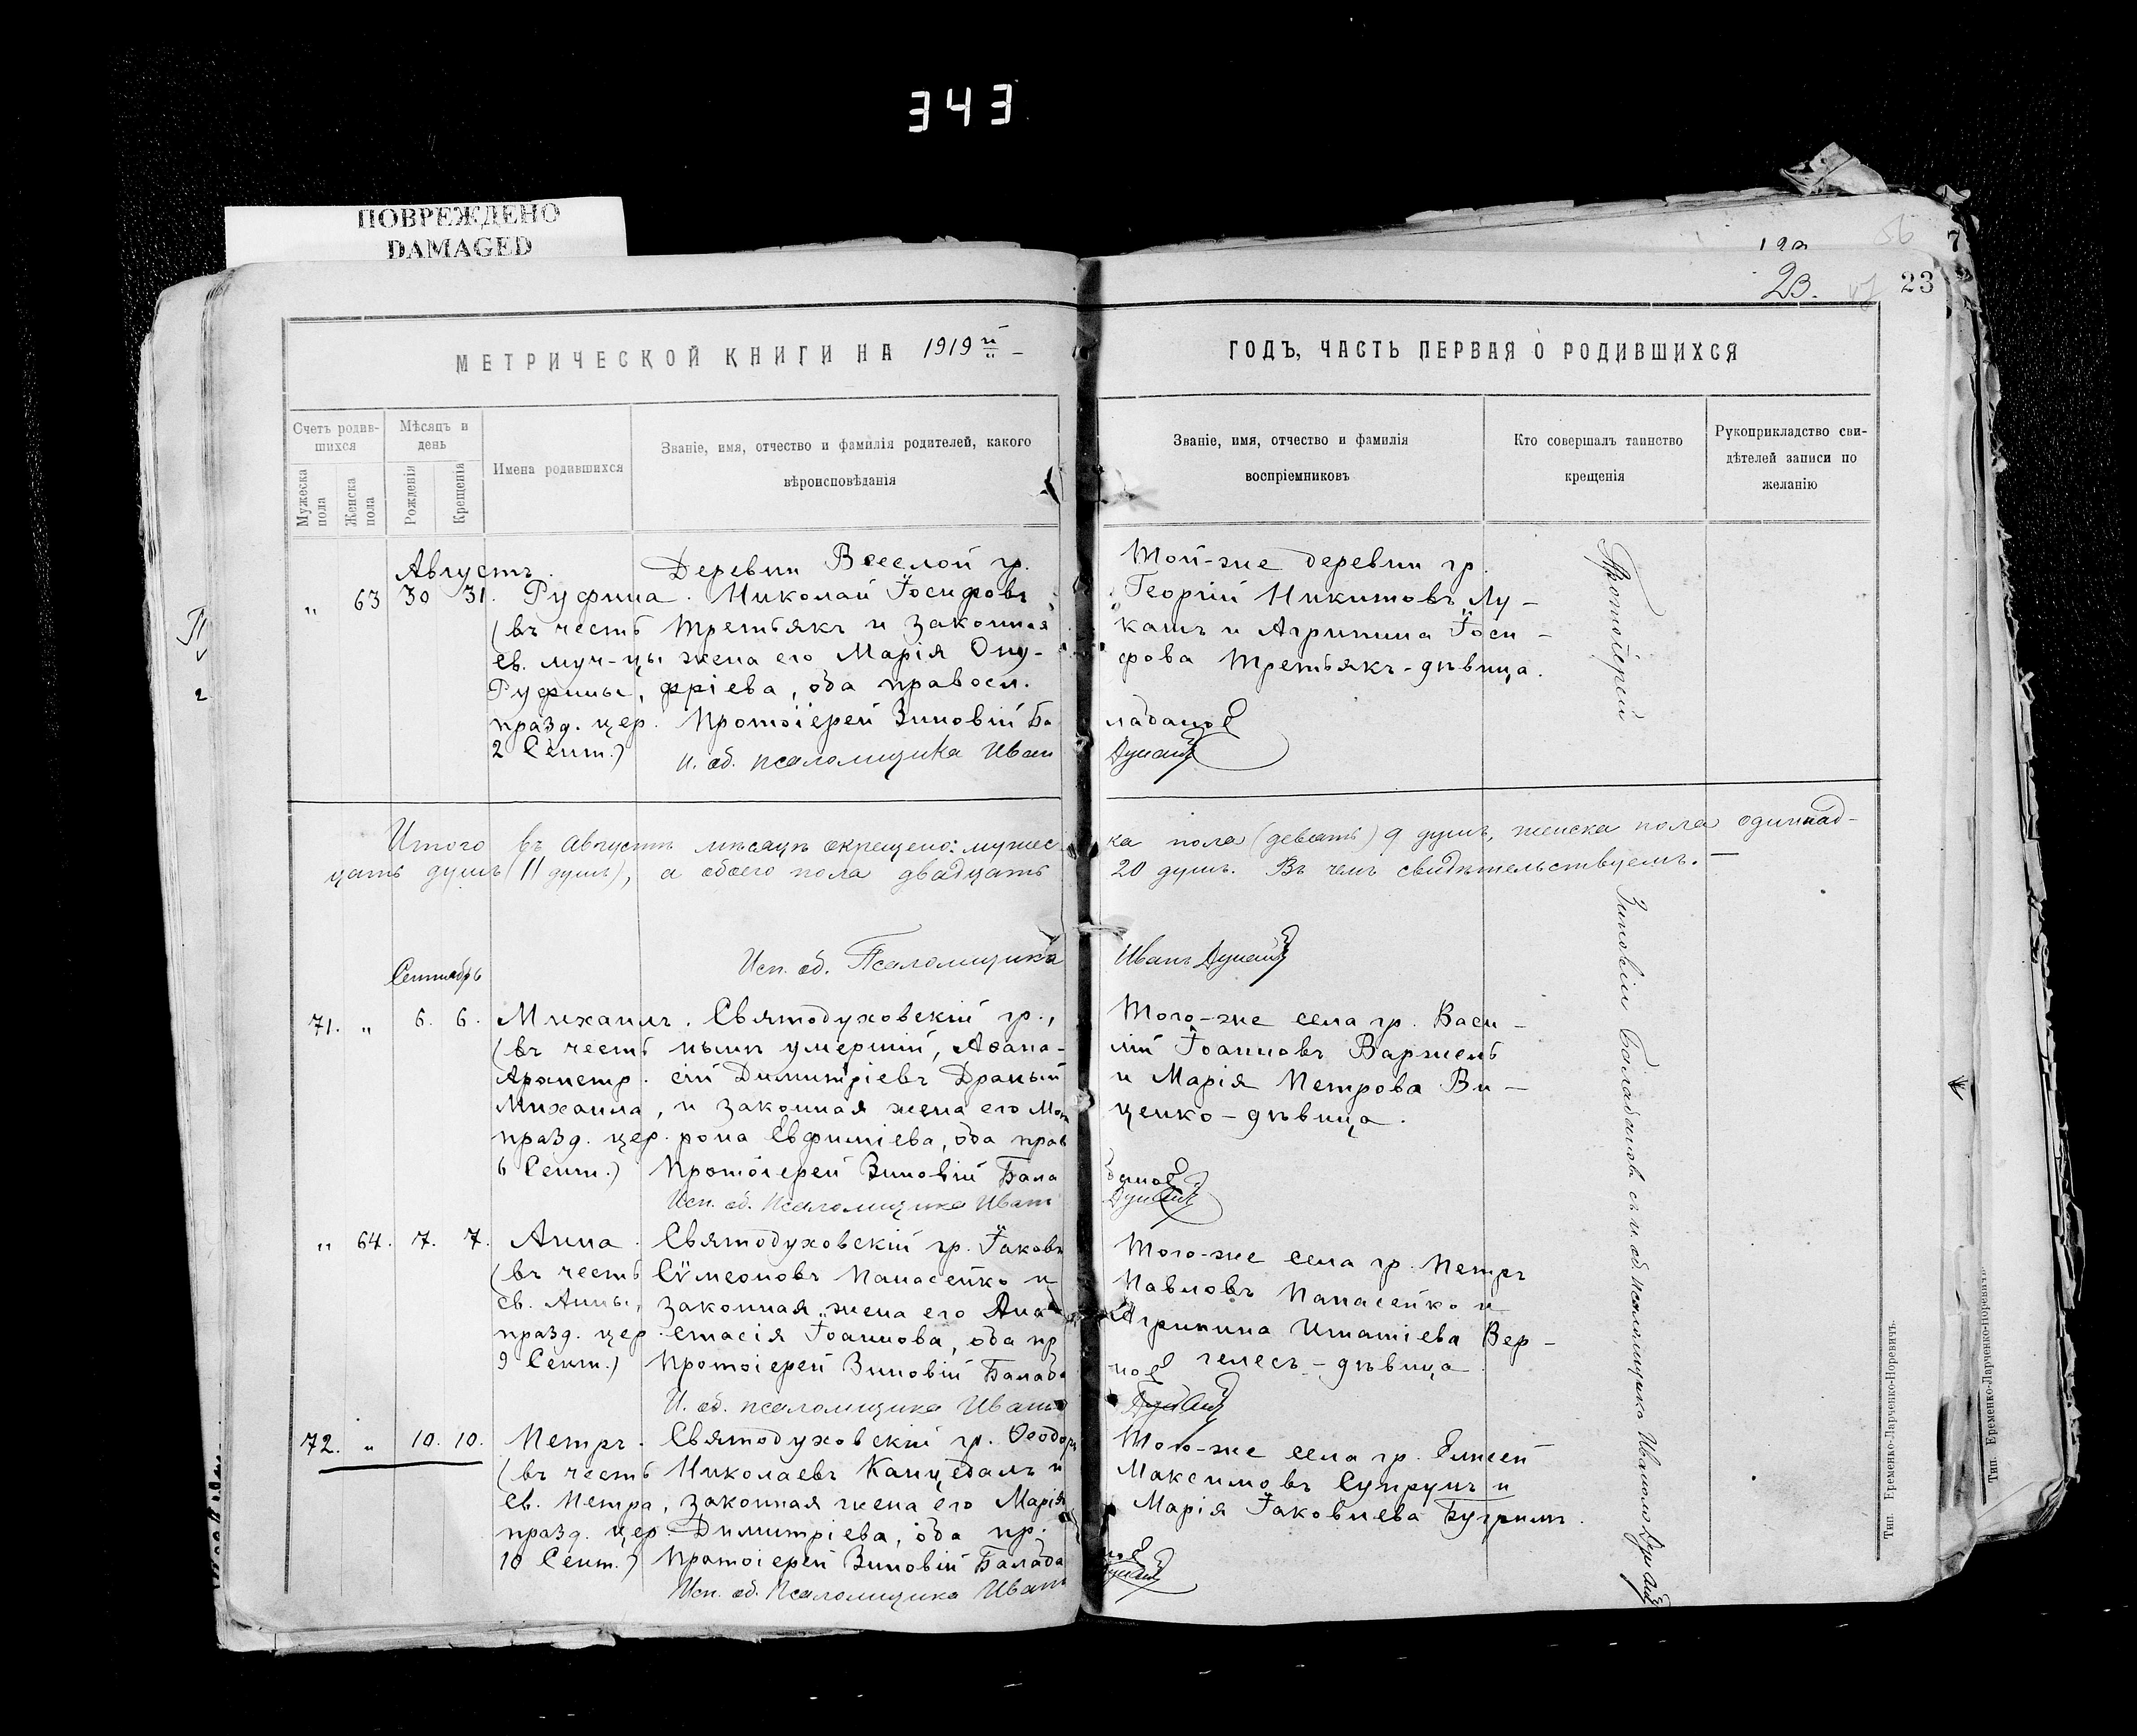 343
ПОВРЕЖДЕНО
DAMAGED
23.
23
7
МЕТРИЧЕСКОЙ КНИГИ НА 1919й
ГОДЪ, ЧАСТЬ ПЕРВАЯ О РОДИВШИХСЯ
Счетъ родив-
шихся
Мужеска пола
Женска пола
Мѣсяцъ и
день
Рожденія
Крещенія
Имена родившихся
Званіе, имя, отчество и фамилія родителей, какого
вѣроисповѣданія
Званіе, имя, отчество и фамилія
воспріемниковъ
Кто совершалъ таинство
крещенія
Рукоприкладство сви-
дѣтелей записи по
желанію
Августъ.
" 63 30 31. Руфина.
(въ честь
св. муч-цы
Руфины,
празд. цер.
2 Сент.)
Деревни Веселой гр.
Николай Іосифовъ
Третьякъ и законная
жена его Марія Ону-
фріева, оба правосл.
Протоіерей Зиновій Ба
ладановъ
и. об. псаломщика Иван
Дунай
Той-же деревни гр.
Георгій Никитовъ Лу-
кашъ и Агрипина Іоси-
фова Третьякъ-дѣвица.
Итого въ Августѣ мѣсяцѣ окрещено: мужес
ка пола (девять) 9 душъ, женска пола одиннад-
цать душъ (11 душъ), а обоего пола двадцать
20 душъ. Въ чемъ свидѣтельствуемъ. —
Исп. об. Псаломщика
Иванъ Дунай
Сентябрь
71. " 6. 6. Михаилъ.
(въ честь
Архистр.
Михаила,
празд. цер.
6 Сент.)
Святодуховскій гр.,
нынѣ умершій, Аѳана-
сій Димитріевъ Драный
и законная жена его Мат
рона Евфиміева, оба прав
Протоіерей Зиновій Бала
дановъ
Исп. об. Псаломщика Иван
Дунай
Того-же села гр. Васи-
лій Іоанновъ Варжель
и Марія Петрова Ви-
ценко-дѣвица.
" 64. 7. 7. Анна.
(въ честь
св. Анны,
празд. цер.
9 Сент.)
Святодуховскій гр. Іаковъ
Сѵмеоновъ Панасейко и
законная жена его Ана
стасія Іоаннова, оба пр
Протоіерей Зиновій Балада
новъ
И. об. псаломщика Иванъ
Дунай
Того-же села гр. Петръ
Павловъ Панасейко и
Агрипина Игнатіева Вер-
гелесъ-дѣвица
72. " 10. 10. Петръ.
(въ честь
Св. Петра,
празд. цер.
10 Сент.)
Святодуховскій гр. Ѳеодоръ
Николаевъ Канцедалъ и
законная жена его Марія
Димитріева, оба пр.
Протоіерей Зиновій Балада
новъ
Исп. об. Псаломщика Иванъ
Дунай
Того-же села гр. Елисей
Максимовъ Супрунъ и
Марія Іаковлева Бугримъ.
Протоіерей
Зиновій Баладановъ съ и. об. псаломщика Иваномъ Дунай
Тип. Еременко-Ларченко-Норевичъ.
Тип. Еременко-Ларченко-Норевичъ.